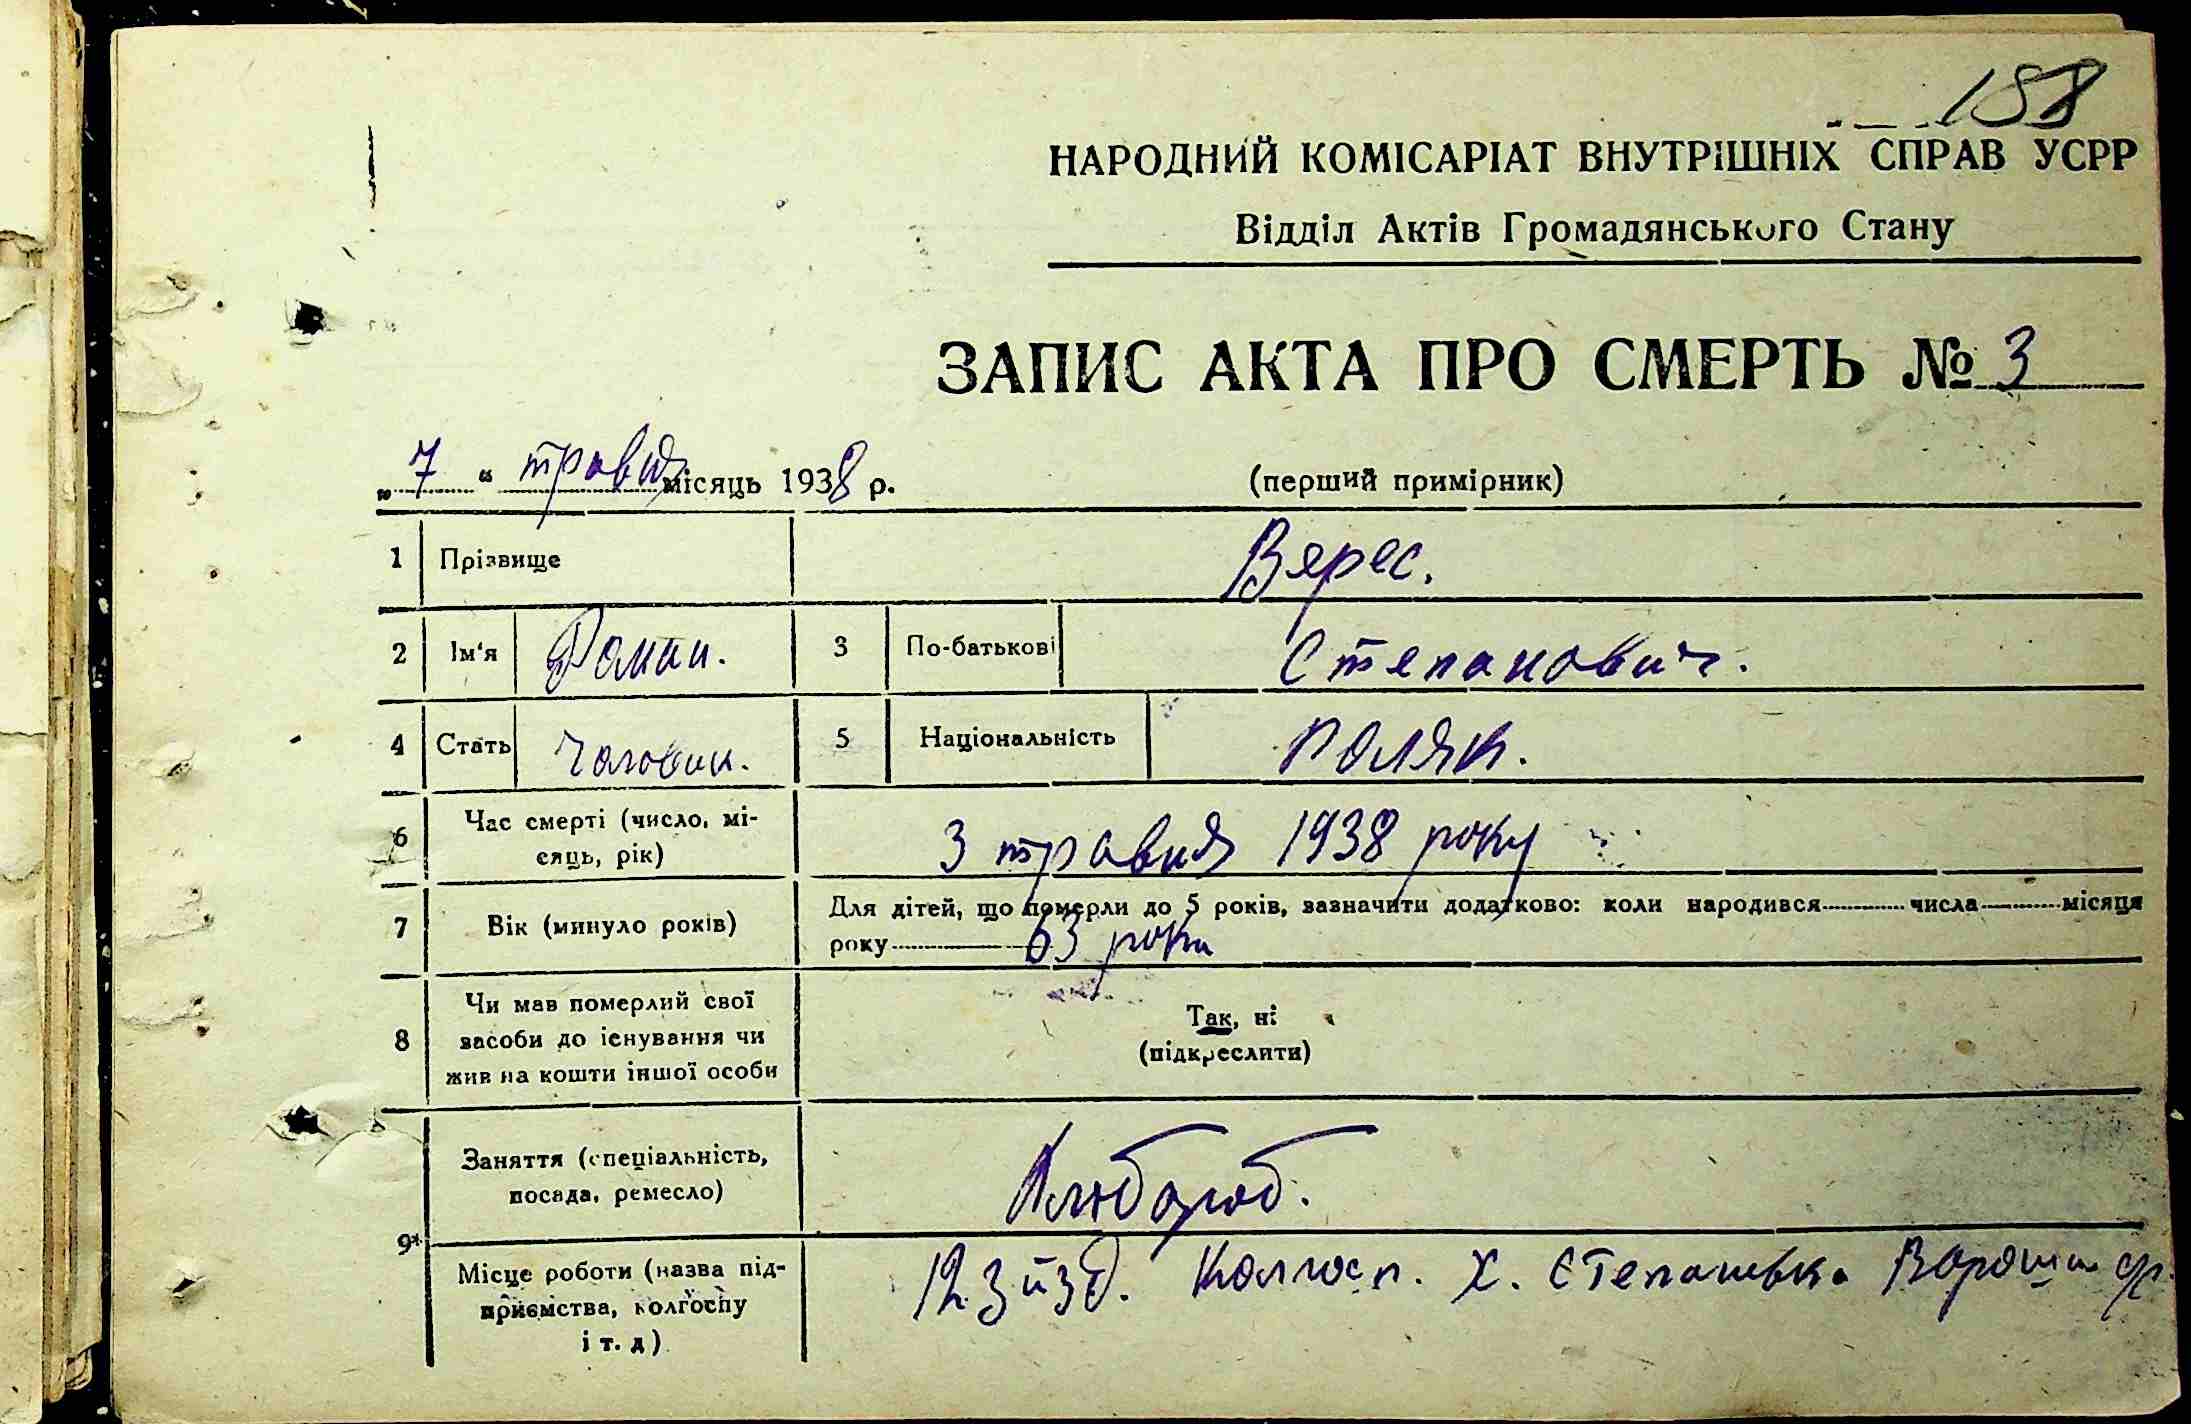 158
НАРОДНИЙ КОМІСАРІАТ ВНУТРІШНІХ СПРАВ УСРР
Відділ Актів Громадянського Стану
ЗАПИС АКТА ПРО СМЕРТЬ № 3
„ 7 “ травня місяць 1938 р. (перший примірник)
1 Прізвище Вярес.
2 Ім'я Роман. 3 По-батькові Стяпанович.
4 Стать Чоловик. 5 Національність поляк.
6 Час смерті (число, мі-
сяць, рік) 3 травня 1938 року
7 Вік (минуло років) Для дітей, що померли до 5 років, зазначити додатково: коли народився числа місяця
року 63 роки
8 Чи мав померлий свої
засоби до існування чи
жив на кошти іншої особи
Так, ні
(підкреслити)
9* Заняття (спеціальність,
посада, ремесло) Хлібороб.
Місце роботи (назва під-
приємства, колгоспу
і т. д) 12 з йзд. Колгосп. х. Степанівка